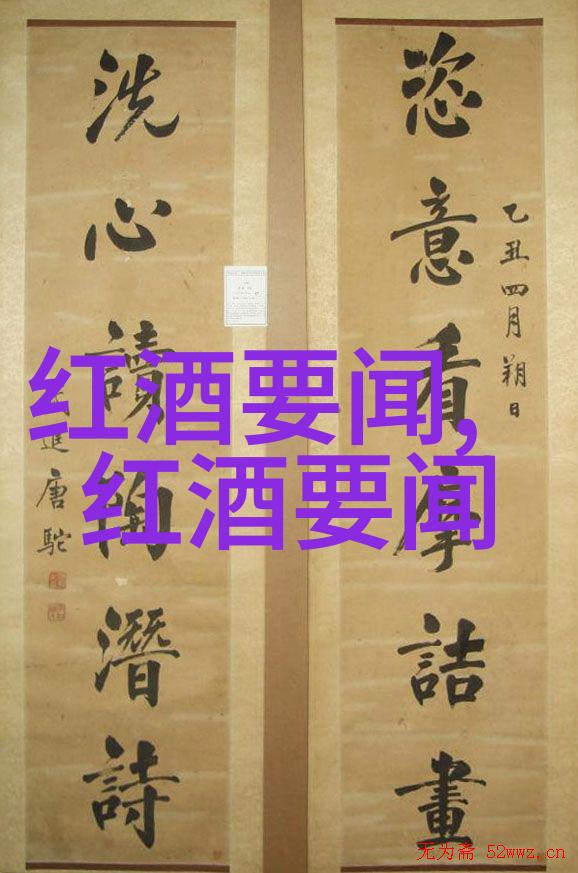 恣意看摩詰畫
乙丑四月朔日
洗心讀陶潛詩
進唐駝
红酒要闻,
红酒要闻
无为斋 52wwz.cn